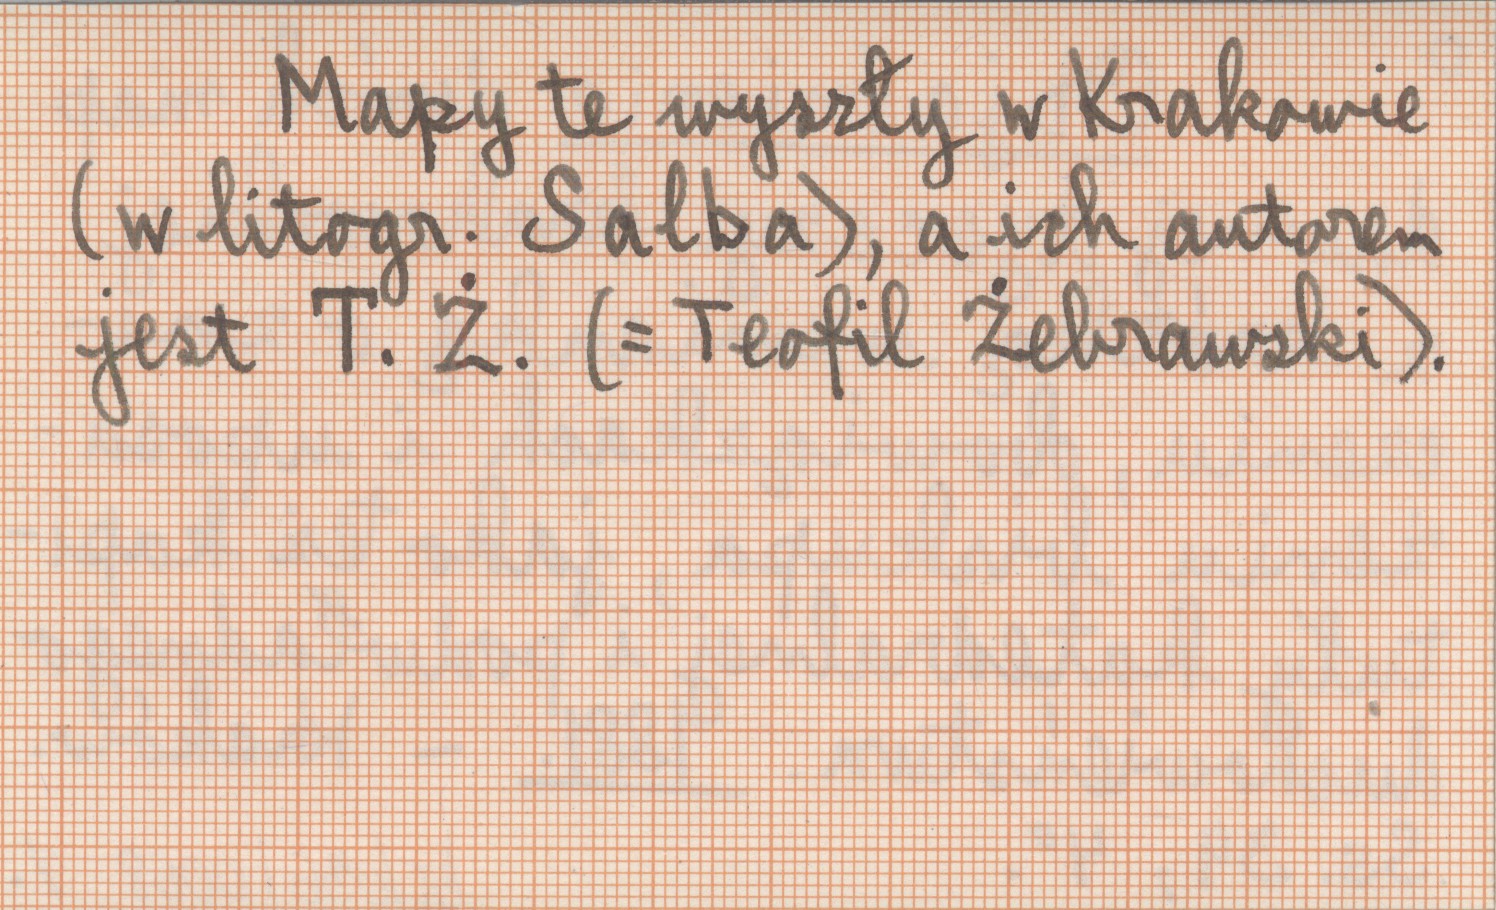 Mapy te wyszły w Krakowie
(w litogr. Salba), a ich autorem
jest T. Ż. (= Teofil Żebrawski).